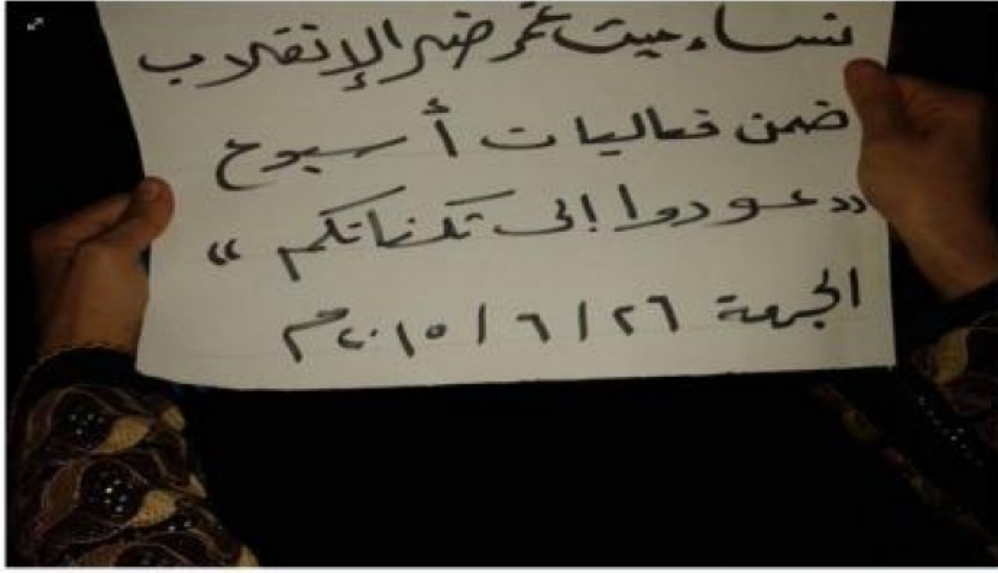 نساء ميت غمر ضد الإنقلاب
ضمن فعاليات أسبوع
«عودوا إلى ثكناتكم»
الجمعة ٢٦/٦/٢٠١٥م